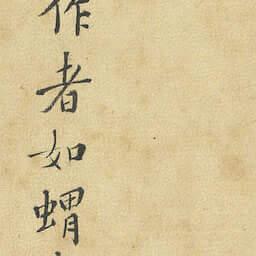 作者如蝟